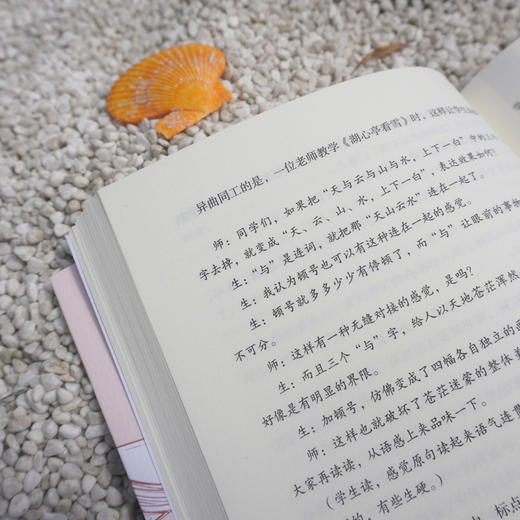 异曲同工的是，一位老师教学《湖心亭看雪》时，这样让学生
师：同学们，如果把“天与云与山与水，上下一白”中的三
字去掉，就变成“天、云、山、水，上下一白”，表达效果如何？
生：“与”是连词，就把那“天山云水”连在一起了。
生：我认为顿号也可以有这种连在一起的感觉。
生：顿号就多多少少有停顿了，而“与”让眼前的事物
不可分。
师：这样有一种无缝对接的感觉，是吗？
生：而且三个“与”字，给人以天地苍茫浑然
好像是有明显的界限。
生：加顿号，仿佛变成了四幅各自独立的
师：这样也就破坏了苍茫迷蒙的整体美
大家再读读，从语感上来品味一下。
（学生读，感觉原句读起来语气连
的，有些生硬。）
标点